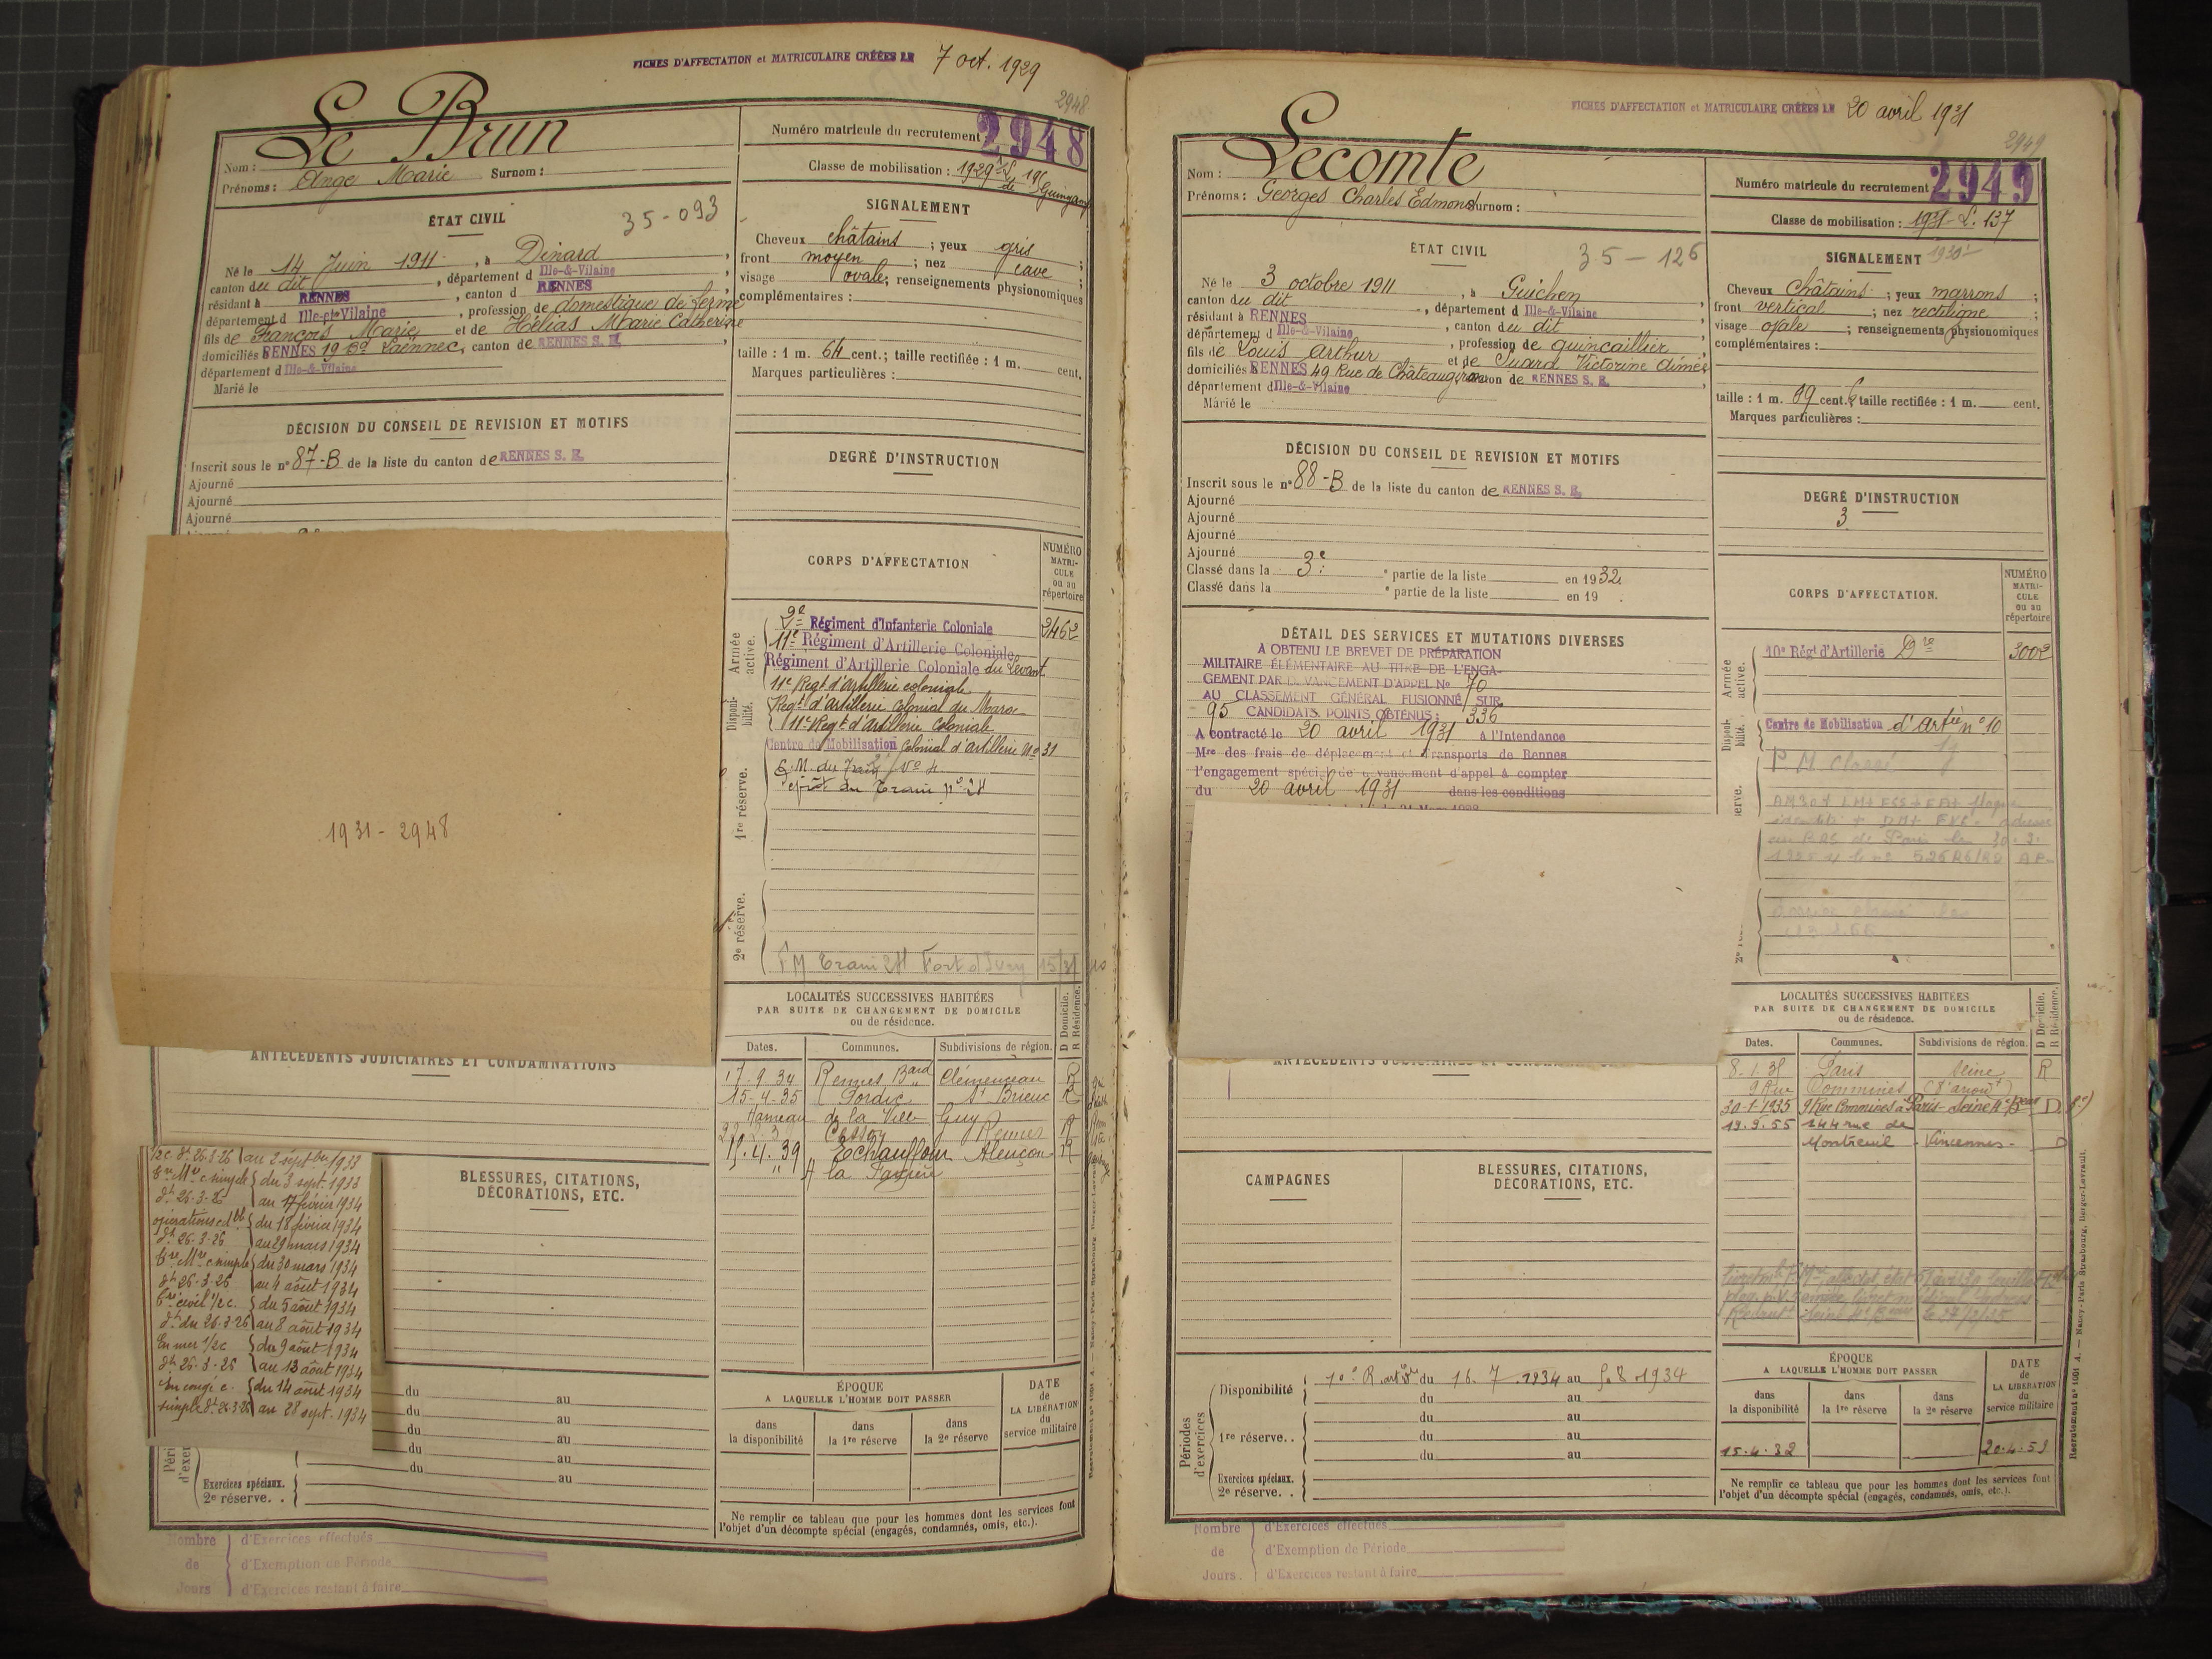 FICHES D'AFFECTATION et MATRICULAIRE CRÉÉES LE 7 oct. 1929
2948
Nom : Le Brun
Prénoms : Ange Marie Surnom :
Numéro matricule du recrutement 2948
Classe de mobilisation : 1929
ÉTAT CIVIL
35-093
Né le 14 Juin 1911, à Dinard
canton du dit, département d Ille-&-Vilaine
résidant à RENNES, canton d RENNES
département d Ille-et-Vilaine, profession de domestique de ferme
fils de François Marie et de Hélias Marie Catherine
domiciliés RENNES 19 Bd Laënnec, canton de RENNES S. E.
département d Ille-&-Vilaine
Marié le
SIGNALEMENT
Cheveux châtains ; yeux gris ;
front moyen ; nez cave ;
visage ovale ; renseignements physionomiques
complémentaires :
taille : 1 m. 64 cent.; taille rectifiée : 1 m. cent.
Marques particulières :
DÉCISION DU CONSEIL DE REVISION ET MOTIFS
Inscrit sous le n° 87-B de la liste du canton de RENNES S. E.
Ajourné
Ajourné
Ajourné
DEGRÉ D'INSTRUCTION
1931 - 2948
CORPS D'AFFECTATION
NUMÉRO MATRI-CULE ou au répertoire
Armée active.
2e Régiment d'Infanterie Coloniale 2462
11e Régiment d'Artillerie Coloniale
Régiment d'Artillerie Coloniale du Levant
11e Regt d'Artillerie coloniale
Disponi-bilité.
Regt d'Artillerie Colonial du Maroc
11e Regt d'Artillerie Coloniale
Centre de Mobilisation Colonial d'artillerie No 31
1re réserve.
2e réserve.
LOCALITÉS SUCCESSIVES HABITÉES
PAR SUITE DE CHANGEMENT DE DOMICILE
ou de résidence.
D Domicile.
R Résidence.
Dates. Communes. Subdivisions de région.
17-9-34 Rennes Bard Clémenceau R
15-4-35 Pordic St Brieuc R
Hameau de la Ville Guy
Cesson Rennes R
15.4.39 Echauffour Alençon R
ANTÉCÉDENTS JUDICIAIRES ET CONDAMNATIONS
BLESSURES, CITATIONS,
DÉCORATIONS, ETC.
au 2 septbre 1933
du 3 sept. 1933
dt 26-3-26 au 17 février 1934
du 18 février 1934
dt 26-3-26 au 29 mars 1934
du 30 mars 1934
dt 26-3-26 au 4 août 1934
civil 1/2 c. du 5 août 1934
dt du 26-3-26 au 8 août 1934
En mer 1/2 c du 9 août 1934
dt 26-3-26 au 13 août 1934
En congé c. du 14 août 1934
simple dt 26-3-26 au 28 sept. 1934
du au
du au
du au
du au
du au
Exercices spéciaux.
2e réserve. .
ÉPOQUE
A LAQUELLE L'HOMME DOIT PASSER
dans la disponibilité
dans la 1re réserve
dans la 2e réserve
DATE de LA LIBÉRATION du service militaire
Ne remplir ce tableau que pour les hommes dont les services font
l'objet d'un décompte spécial (engagés, condamnés, omis, etc.).
Nombre de Jours
d'Exercices effectués
d'Exemption de Période
d'Exercices restant à faire
FICHES D'AFFECTATION et MATRICULAIRE CRÉÉES LE 20 avril 1931
2949
Nom : Lecomte
Prénoms : Georges Charles Edmond Surnom :
Numéro matricule du recrutement 2949
Classe de mobilisation : 1931 - L. 137
ÉTAT CIVIL
35-126
Né le 3 octobre 1911, à Guichen
canton du dit, département d Ille-&-Vilaine
résidant à RENNES, canton du dit
département d Ille-&-Vilaine, profession de quincaillier
fils de Louis Arthur et de Suard Victorine Aimée
domiciliés RENNES 49 Rue de Châteaugiron canton de RENNES S. E.
département d Ille-&-Vilaine
Marié le
SIGNALEMENT
Cheveux Châtains ; yeux marrons ;
front vertical ; nez rectiligne ;
visage ovale ; renseignements physionomiques
complémentaires :
taille : 1 m. 69 cent. ; taille rectifiée : 1 m. cent.
Marques particulières :
DÉCISION DU CONSEIL DE REVISION ET MOTIFS
Inscrit sous le n° 88-B de la liste du canton de RENNES S. E.
Ajourné
Ajourné
Ajourné
Ajourné
Classé dans la 3e partie de la liste en 1932
Classé dans la e partie de la liste en 19 .
DEGRÉ D'INSTRUCTION
3
DÉTAIL DES SERVICES ET MUTATIONS DIVERSES
A OBTENU LE BREVET DE PRÉPARATION
MILITAIRE ÉLÉMENTAIRE AU TITRE DE L'ENGA-
GEMENT PAR DEVANCEMENT D'APPEL No 70
AU CLASSEMENT GÉNÉRAL FUSIONNÉ SUR
95 CANDIDATS. POINTS OBTENUS : 336
A contracté le 20 avril 1931 à l'Intendance
Mre des frais de déplacement et Transports de Rennes
l'engagement spécial de devancement d'appel à compter
du 20 avril 1931 dans les conditions
CORPS D'AFFECTATION.
NUMÉRO MATRI-CULE ou au répertoire
Armée active.
10e Régt d'Artillerie Dre 3002
Disponi-bilité.
Centre de Mobilisation d'Artie n° 10
P. M. Classé
LOCALITÉS SUCCESSIVES HABITÉES
PAR SUITE DE CHANGEMENT DE DOMICILE
ou de résidence.
D Domicile.
R Résidence.
Dates. Communes. Subdivisions de région.
Paris Seine R
9 Rue Commines
30-1-1935 9 Rue Commines à Paris - Seine 4e Beau D
19.9.55 144 rue de
Montreuil - Vincennes - D
CAMPAGNES
BLESSURES, CITATIONS,
DÉCORATIONS, ETC.
Périodes d'exercices
Disponibilité 10e R. art. du 16. 7. 1934 au 5. 8. 1934
du au
1re réserve. .
du au
du au
du au
Exercices spéciaux.
2e réserve. .
ÉPOQUE
A LAQUELLE L'HOMME DOIT PASSER
dans la disponibilité
dans la 1re réserve
dans la 2e réserve
DATE de LA LIBÉRATION du service militaire
15.4.32 20.4.59
Ne remplir ce tableau que pour les hommes dont les services font
l'objet d'un décompte spécial (engagés, condamnés, omis, etc.).
Recrutement n° 1001 A. — Nancy-Paris-Strasbourg, Berger-Levrault.
Nombre de Jours
d'Exercices effectués
d'Exemption de Période
d'Exercices restant à faire